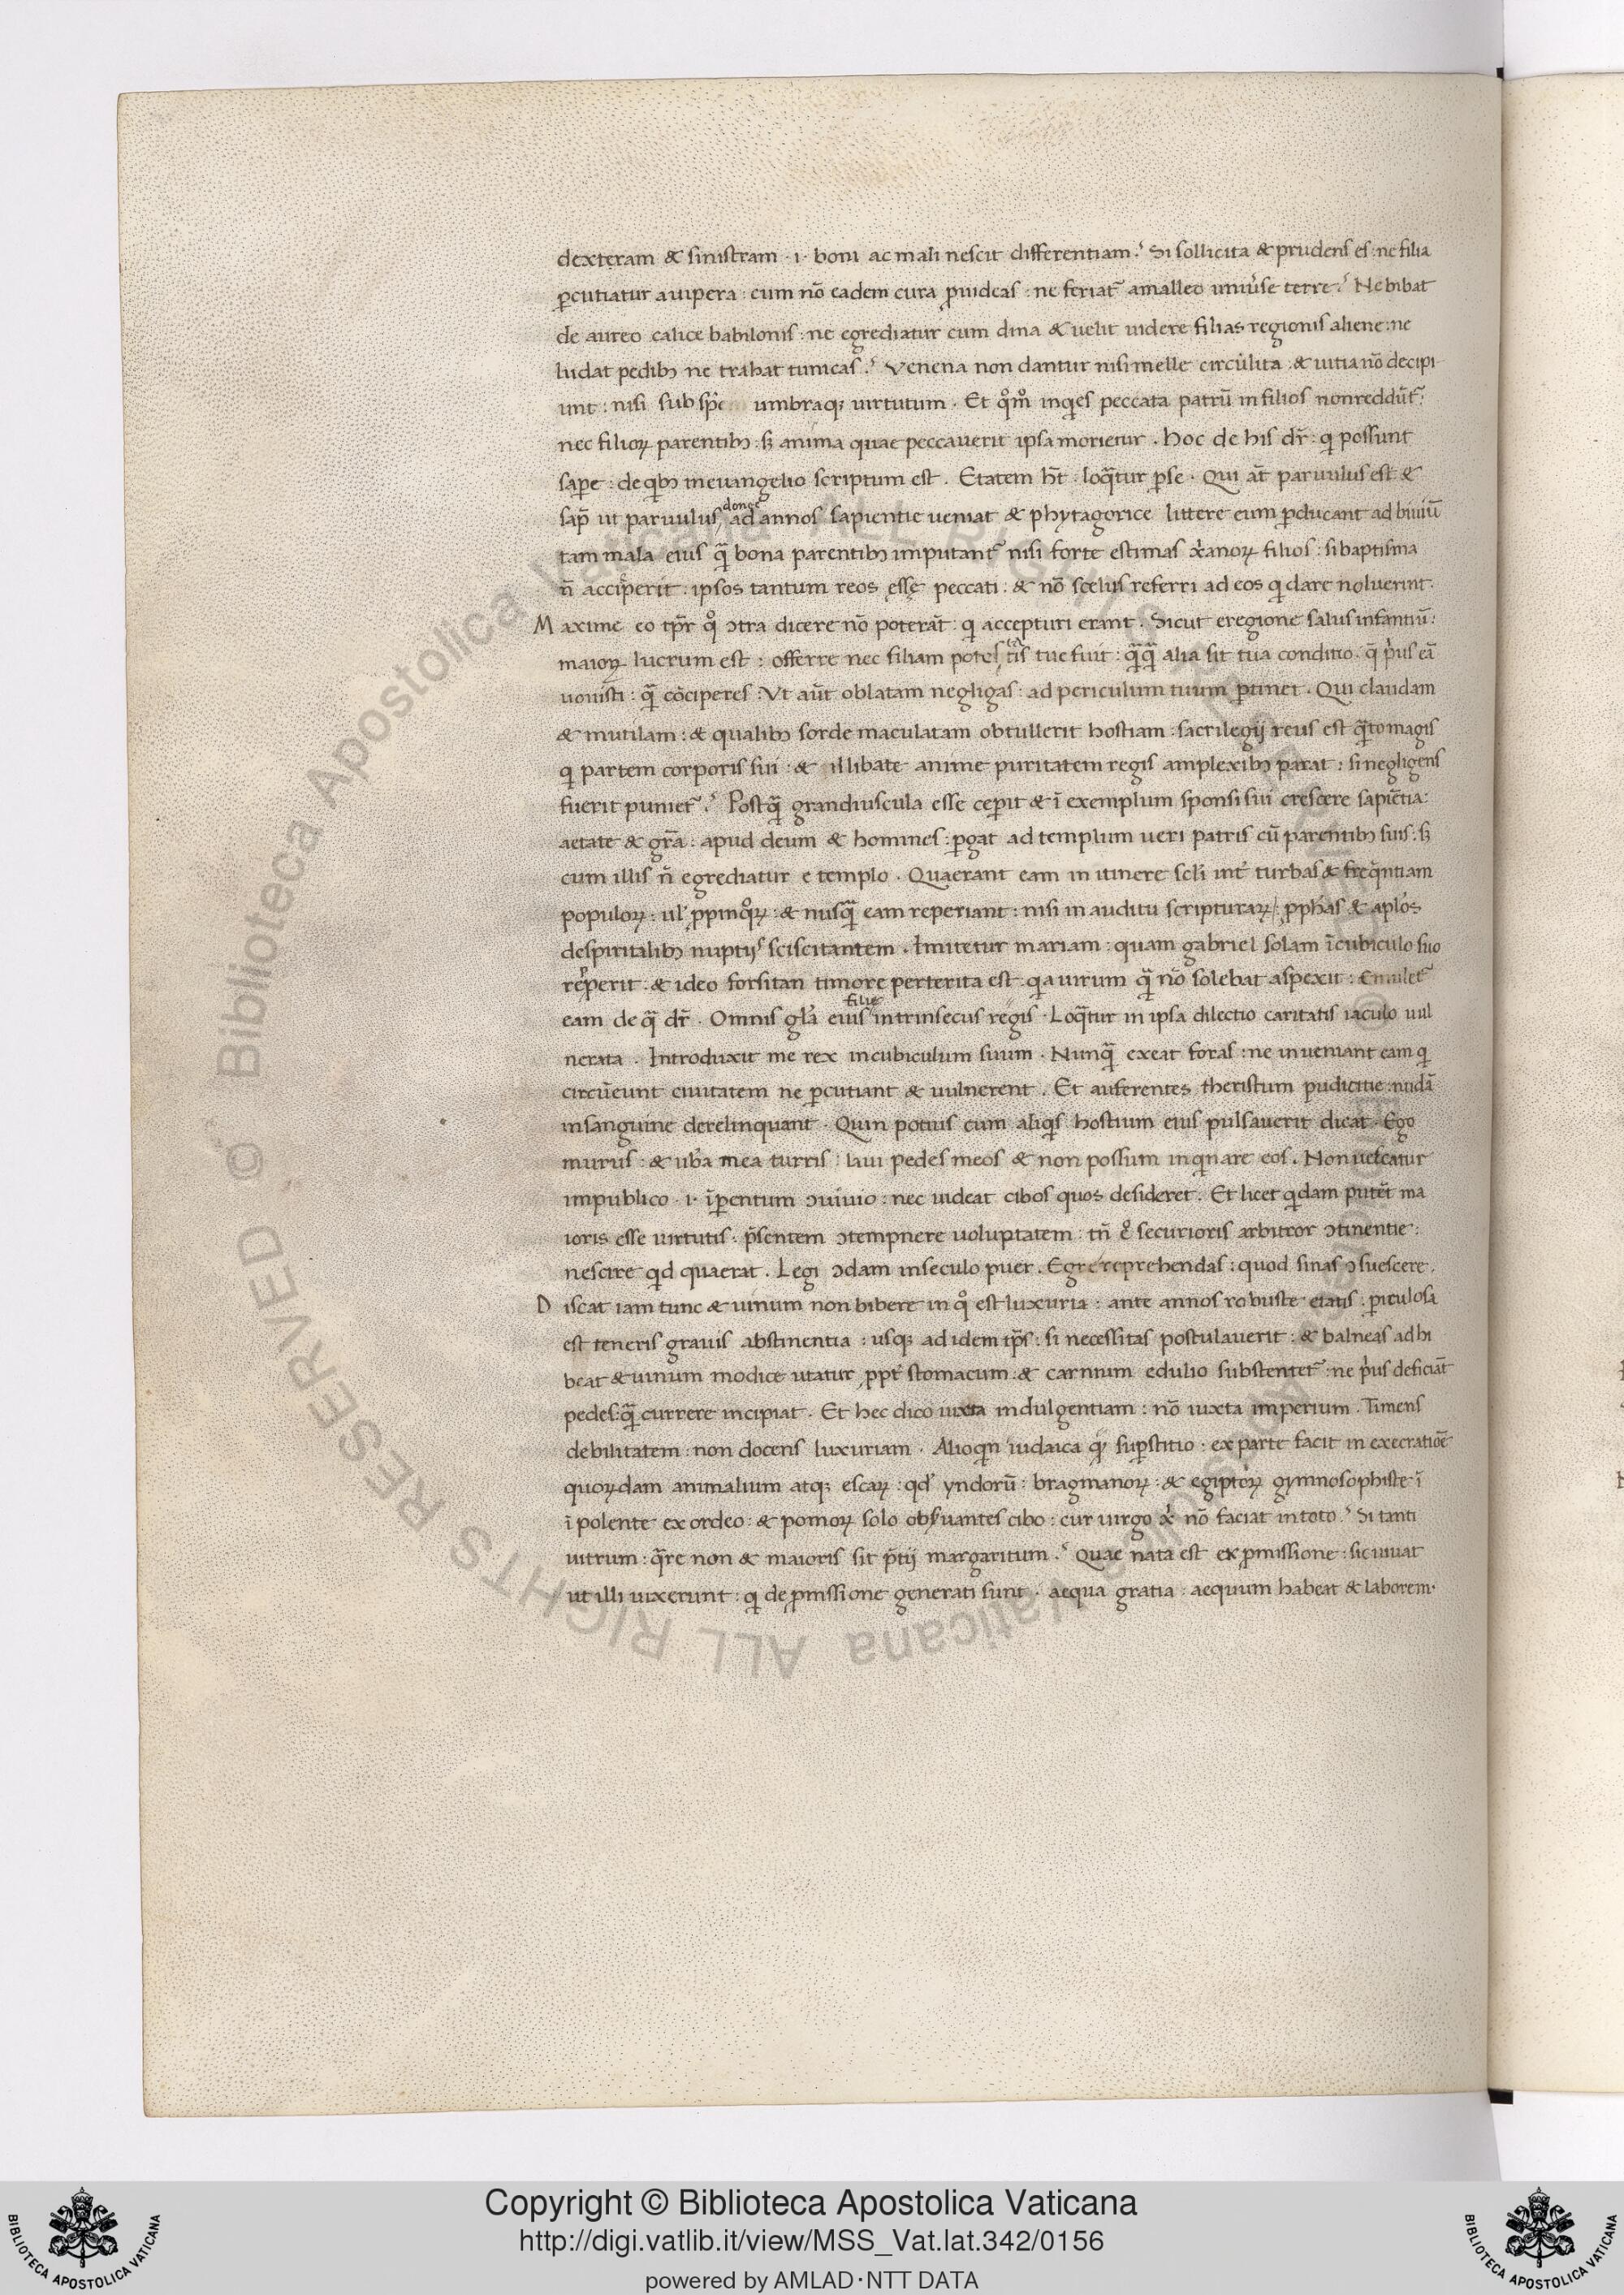 dexteram & sinistram · i · boni ac mali nescit differentiam.ˀ Si sollicita & prudens es : ne filia
p̲cutiatur a uipera : cum nō eadem cura ꝓuideas : ne feriat᷑ a malleo uniu᷑se terre.ˀ Ne bibat
de aureo calice babilonis : ne egrediatur cum dina & uelit uidere filias regionis aliene : ne
ludat pedibꝫ ne trahat tunicas.ˀ Venena non dantur nisi melle circūlita : & uitia nō decipi
unt : nisi sub spē umbraqꝫ uirtutum . Et qͦmͦ inqͥes peccata patrū in filios non reddūt᷑ :
nec filioꝝ parentibꝫ : sꝫ anima quae peccauerit ipsa morietur . Hoc de his dr̄ : qͥ possunt
sap̲e : de qͥbꝫ in euangelio scriptum est . Etatem ht̄ . loqᷓtur p̲ se . Qui āt paruulus est &
sap̄ ut paruulus donec ad annos sapientie ueniat & phytagorice littere eum p̲ducant ad biuiū
tam mala eius qᷓ bona parentibꝫ imputant᷑ nisi forte estimas xp̄ianoꝝ filios : si baptisma
n̄ accip̲erit : ipsos tantum reos esse peccati : & nō scelus referri ad eos qͥ dare noluerint .
Maxime eo tp̄r qͦ ↄtra dicere nō poterāt : qͥ accepturi erant . Sicut e regione salus infantiū :
maioꝝ lucrum est : offerre nec filiam potestatis tue fuit : qᷓqᷓ alia sit tua conditio . q̄ pͥus eā
uouisti : qᷓ cōciperes : Vt aūt oblatam negligas : ad periculum tuum p̲tinet . Qui claudam
& mutilam : & qualibꝫ sorde maculatam obtullerit hostiam : sacrilegij reus est qᷓto magis
qͥ partem corporis sui : & illibate anime puritatem regis amplexibꝫ parat : si negligens
fuerit puniet᷑.ˀ Postqᷓ grandiuscula esse cep̲it & ī exemplum sponsi sui crescere sapiētia :
aetate & gr̄a : apud deum & homines : p̲gat ad templum ueri patris cū parentibꝫ suis : sꝫ
cum illis n̄ egrediatur e templo . Quaerant eam in itinere scl̄i int᷑ turbas & freqͣntiam
populoꝝ : ul᷑ ꝓpinqͦꝝ : & nusqᷓ eam reperiant : nisi in auditu scripturaꝝ / ꝓphās & apl̄os
de spiritalibꝫ nuptijs sciscitantem . Imitetur mariam : quam gabriel solam ī cubiculo suo
rep̲perit : & ideo forsitan timore perterita est : qͥa uirum qᷓ nō solebat aspexit : Emulet᷑
eam de qᷓ dr̄ . Omnis gl̄a eius filie intrinsecus regis . Loqᷓtur in ipsa dilectio caritatis iaculo uul
nerata . Introduxit me rex in cubiculum suum . Nunqᷓ exeat foras : ne inueniant eam qͥ
circūeunt ciuitatem ne p̲cutiant & uulnerent . Et auferentes theristum pudicitie : nudā
in sanguine derelinquant . Quin potius cum aliqͥs hostium eius pulsauerit dicat . Ego
murus : & ub̲a mea turris : laui pedes meos & non possum inqͥnare eos . Non uescatur
in publico · i · ī parentum ↄuiuio : nec uideat cibos quos desideret . Et licet qͥdam putēt ma
ioris esse uirtutis : p̄sentem ↄtempnere uoluptatem : tn̄ e᷑ securioris arbitror ↄtinentie :
nescire qͥd quaerat . Legi ↄdam in seculo puer . Egre reprehendas : quod sinas ↄsuescere .
Discat iam tunc & uinum non bibere in qͦ est luxuria : ante annos robuste etatis : p̲iculosa
est teneris grauis abstinentia : usqꝫ ad idem tp̄s : si necessitas postulauerit : & balneas adhi
beat & uinum modice utatur ꝓpt᷑ stomacum : & carnium edulio substentet᷑ : ne pͥus deficiāt
pedes : qᷓ currere incipiat . Et hec dico iuxta indulgentiam : nō iuxta imperium . Timens
debilitatem : non docens luxuriam . Alioqͥn iudaica superstitio : ex parte facit in execratiōe
quoꝝdam animalium atqꝫ escaꝝ : qd᷑ yndorū : bragmanoꝝ : & egiptioꝝ gymnosophiste ī
ī polente ex ordeo : & pomoꝝ solo obs̲uantes cibo : cur uirgo xp̄i nō faciat in toto.ˀ Si tanti
uitrum : qᷓre non & maioris sit p̄tij margaritum.ˀ Quae nata est ex ꝓmissione : sic uiuat
ut illi uixerunt : qͥ de ꝓmissione generati sunt . aequa gratia : aequum habeat & laborem .
© Biblioteca Apostolica Vaticana ALL RIGHTS RESERVED © Biblioteca Apostolica Vaticana ALL RIGHTS RESERVED
Copyright © Biblioteca Apostolica Vaticana
http://digi.vatlib.it/view/MSS_Vat.lat.342/0156
powered by AMLAD·NTT DATA
BIBLIOTECA APOSTOLICA VATICANA
BIBLIOTECA APOSTOLICA VATICANA